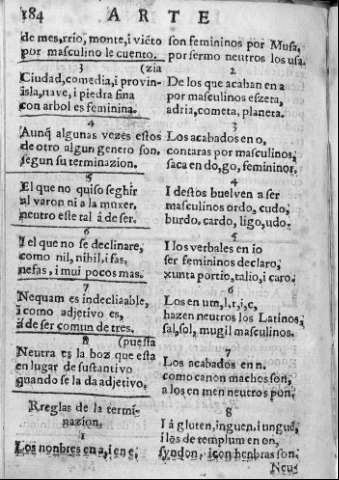 184 ARTE
de mes, rrio, monte, i viẽto
por masculino le cuento. (zia
3
Ciudad, comedia, i provin-
isla, nave, i piedra fina
con arbol es feminina.
4
Aunq̃ algunas vezes estos
de otro algun genero son,
segun su terminazion.
5
El que no quiso seghir
al varon ni a la muxer,
neutro este tal á de ser.
6
I el que no se declinare,
como nil, nihil, i fas,
nefas, i mui pocos mas.
7
Nequam es indecliaable,
i como adjetivo es,
á de ser comun de tres.
8 (puesta
Neutra es la boz que esta
en lugar de sustantivo
quando se la da adjetivo.
Rreglas de la termi-
nazion.
1
Los nonbres en a, i en e,
son femininos por Musa,
por sermo neutros los usa.
2
De los que acaban en a
por masculinos eszeta,
adria, cometa, planeta.
3
Los acabados en o,
contaras por masculinos,
saca en do, go, femininor.
4
I destos buelven a ser
masculinos ordo, cudo,
burdo, cardo, ligo, udo.
5
I los verbales en io
ser femininos declaro,
xunta portio, talio, i caro.
6
Los en um, l, t, i, c,
hazen neutros los Latinos,
sal, sol, mugil masculinos.
7
Los acabados en n.
como canon machos son,
a los en men neutros pon.
8
I á gluten, inguen, i ungué,
i los de templum en on,
syndon, icon henbras son.
Neus